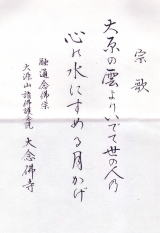 宗歌
大原の雲よりいでて世の人の
心の水にすめる月かげ
融通念佛宗
大源山諸佛護念院 大念佛寺